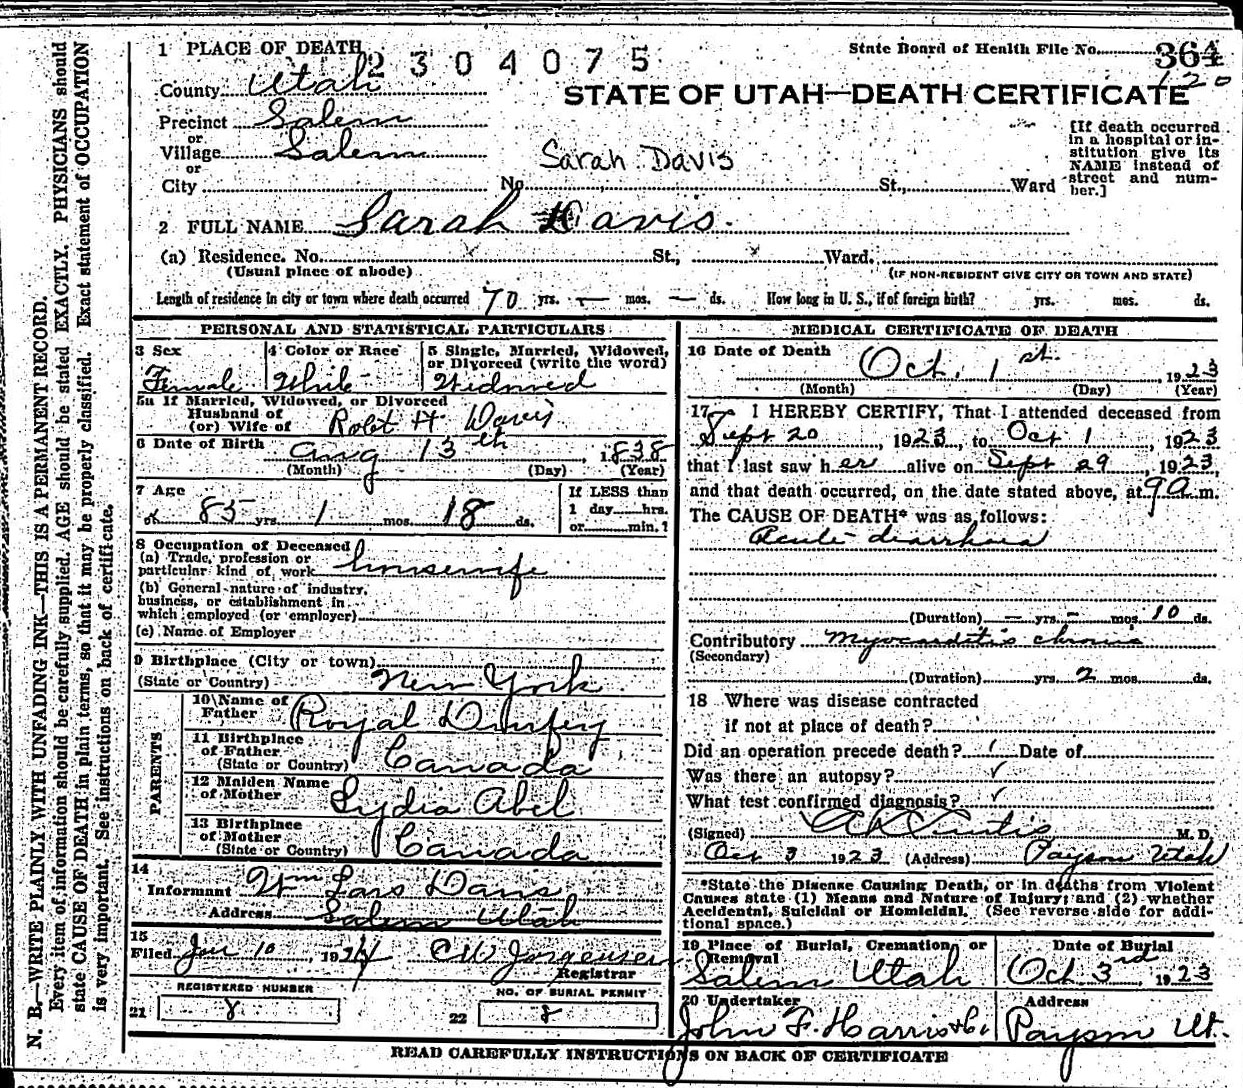 1 PLACE OF DEATH
2304075
State Board of Health File No. 364
120
County Utah
STATE OF UTAH—DEATH CERTIFICATE
Precinct Salem
or
Village Salem
or
City No. St., Ward
Sarah Davis
[If death occurred
in a hospital or in-
stitution give its
NAME instead of
street and num-
ber.]
2 FULL NAME Sarah Davis.
(a) Residence. No. St., Ward.
(Usual place of abode)
(IF NON-RESIDENT GIVE CITY OR TOWN AND STATE)
Length of residence in city or town where death occurred 70 yrs. — mos. — ds. How long in U. S., if of foreign birth? yrs. mos. ds.
PERSONAL AND STATISTICAL PARTICULARS
3 Sex
Female
4 Color or Race
White
5 Single, Married, Widowed,
or Divorced (write the word)
Widowed
5a If Married, Widowed, or Divorced
Husband of
(or) Wife of Robt H. Davis
6 Date of Birth Aug 13th, 1838
(Month) (Day) (Year)
7 Age
85 yrs. 1 mos. 18 ds.
If LESS than
1 day hrs.
or min.?
8 Occupation of Deceased
(a) Trade, profession or
particular kind of work housewife
(b) General nature of industry,
business, or establishment in
which employed (or employer)
(c) Name of Employer
9 Birthplace (City or town)
(State or Country) New York
PARENTS
10 Name of
Father Royal Durfey
11 Birthplace
of Father
(State or Country) Canada
12 Maiden Name
of Mother Lydia Abel
13 Birthplace
of Mother
(State or Country) Canada
14
Informant Wm Davis
Address Salem Utah
15
Filed Jan 10 1924 C W Jorgensen
Registrar
REGISTERED NUMBER
21 8
NO. OF BURIAL PERMIT
22 8
MEDICAL CERTIFICATE OF DEATH
16 Date of Death Oct. 1st. 1923
(Month) (Day) (Year)
17 I HEREBY CERTIFY, That I attended deceased from
Sept 20, 1923, to Oct 1, 1923
that I last saw her alive on Sept 29, 1923,
and that death occurred, on the date stated above, at 9 a.m.
The CAUSE OF DEATH* was as follows:
Acute diarrhoea
(Duration) — yrs. — mos. 10 ds.
Contributory Myocarditis chronic
(Secondary)
(Duration) yrs. 2 mos. ds.
18 Where was disease contracted
if not at place of death?
Did an operation precede death? Date of
Was there an autopsy?
What test confirmed diagnosis?
(Signed) Curtis M. D.
Oct 3 1923 (Address) Payson Utah
*State the Disease Causing Death, or in deaths from Violent
Causes state (1) Means and Nature of Injury; and (2) whether
Accidental, Suicidal or Homicidal. (See reverse side for addi-
tional space.)
19 Place of Burial, Cremation, or
Removal
Salem Utah
Date of Burial
Oct 3rd, 1923
20 Undertaker
John F. Harris & Co.
Address
Payson Ut.
READ CAREFULLY INSTRUCTIONS ON BACK OF CERTIFICATE
N. B.—WRITE PLAINLY WITH UNFADING INK—THIS IS A PERMANENT RECORD.
Every item of information should be carefully supplied. AGE should be stated EXACTLY. PHYSICIANS should
state CAUSE OF DEATH in plain terms, so that it may be properly classified. Exact statement of OCCUPATION
is very important. See instructions on back of certificate.